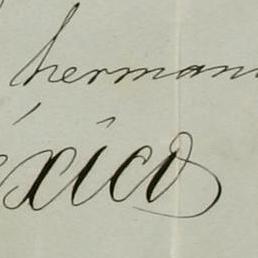 herman
éxico